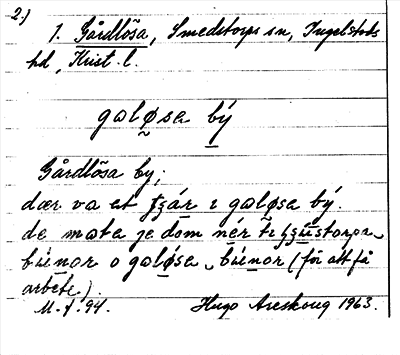 2.)
1. Gårdlösa, Smedstorps sn, Ingelstads
hd, Krist. l.
galø̰sa bý
Gårdlösa by;
dær va et år ı galøsa bý.
de mæta je dom nér
búenor o galøsa búenor (för att få
arbete).
M. f. 94. Hugo Areskoug 1963.